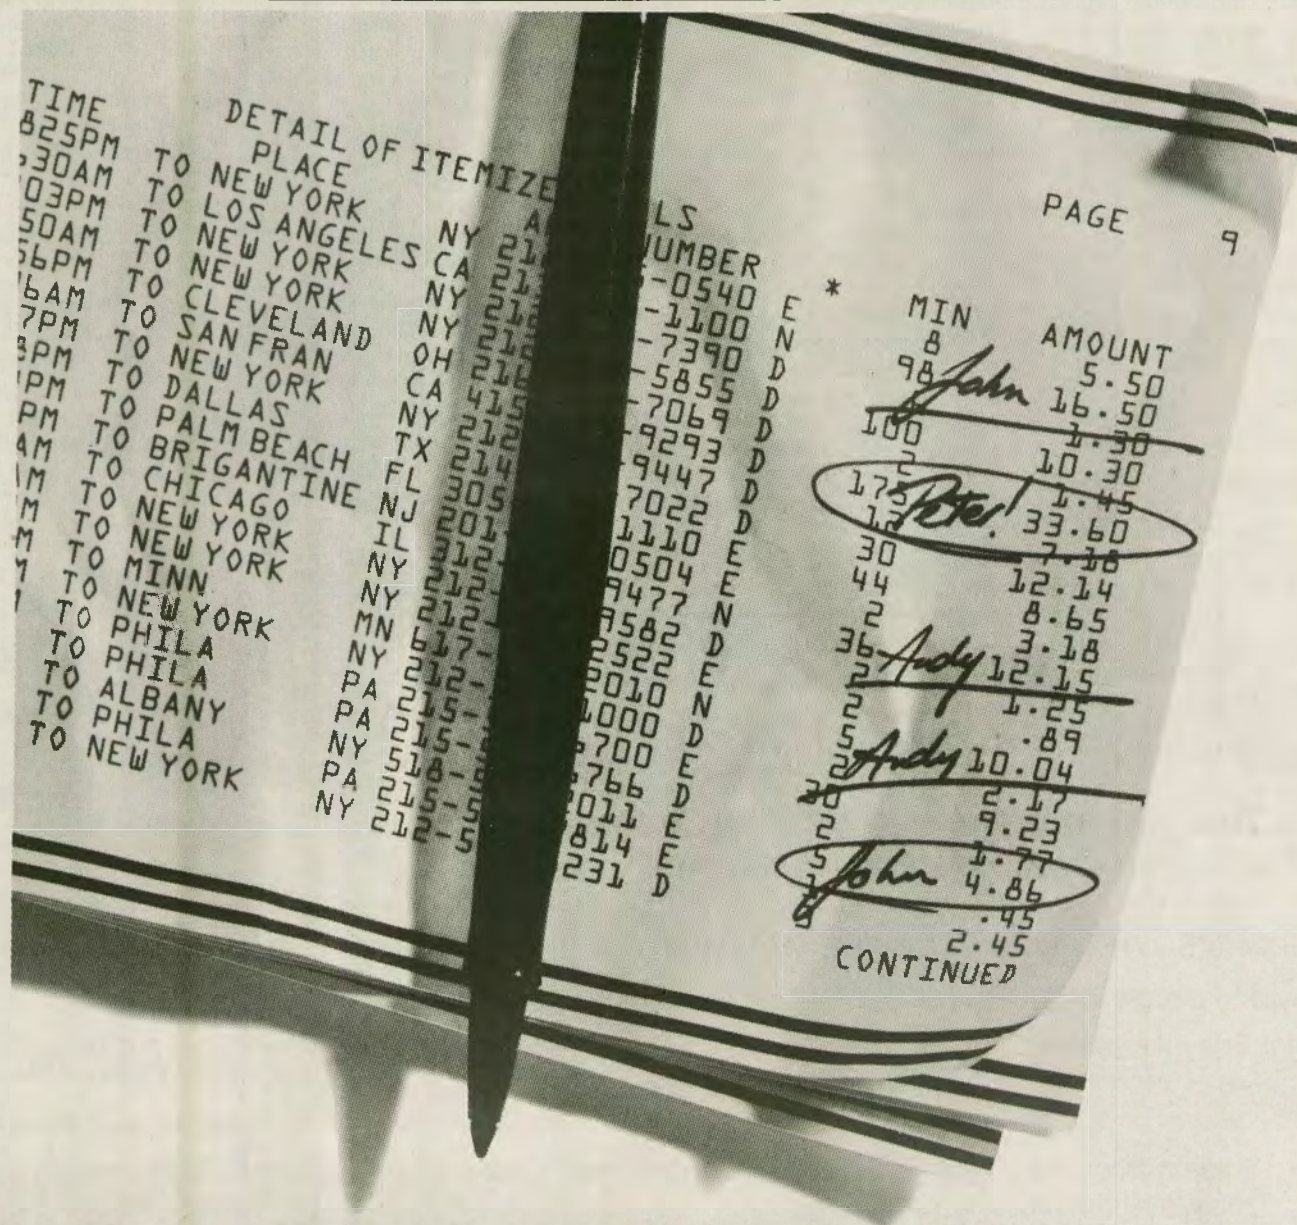 DETAIL OF ITEMIZE LS PAGE 9
TIME PLACE A NUMBER * MIN AMOUNT
825PM TO NEW YORK NY 21 -0540 E 8 5.50
30AM TO LOS ANGELES CA 21 -1100 N 98 John 16.50
03PM TO NEW YORK NY 21 -7390 D 1.30
50AM TO NEW YORK NY 212 -5855 D 100 10.30
56PM TO CLEVELAND OH 216 -7069 D 2 1.45
16AM TO SAN FRAN CA 415 -9293 D 175 Peter! 33.60
7PM TO NEW YORK NY 212 -9447 D 12 7.18
8PM TO DALLAS TX 214 7022 D 30 12.14
PM TO PALM BEACH FL 305 1110 E 44 8.65
PM TO BRIGANTINE NJ 201 0504 E 2 3.18
AM TO CHICAGO IL 312- 9477 N 36 Andy 12.15
AM TO NEW YORK NY 212- 9582 D 2 1.25
M TO NEW YORK NY 212- 2522 E 2 .89
M TO MINN MN 617- 2010 N 5 Andy 10.04
M TO NEW YORK NY 212- 1000 D 2 2.17
TO PHILA PA 215- 700 E 30 9.23
TO PHILA PA 215- 766 D 2 1.77
TO ALBANY NY 518- 011 E 5 John 4.86
TO PHILA PA 215-5 814 E 1 .45
TO NEW YORK NY 212-5 231 D 8 2.45
CONTINUED